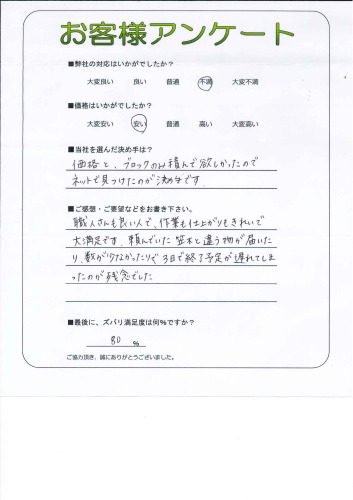 お客様アンケート
■弊社の対応はいかがでしたか？
大変良い 良い 普通 不満 大変不満
■価格はいかがでしたか？
大変安い 安い 普通 高い 大変高い
■当社を選んだ決め手は？
価格と、ブロックのみ積んで欲しかったので
ネットで見つけたのが決め手です。
■ご感想・ご要望などをお書き下さい。
職人さんも良い人で、作業も仕上がりもきれいで
大満足です。頼んでいた笠木と違う物が届いた
り、数が少なかったりで3日で終了予定が遅れてしま
ったのが残念でした
■最後に、ズバリ満足度は何%ですか？
80 %
ご協力頂き、誠にありがとうございました。